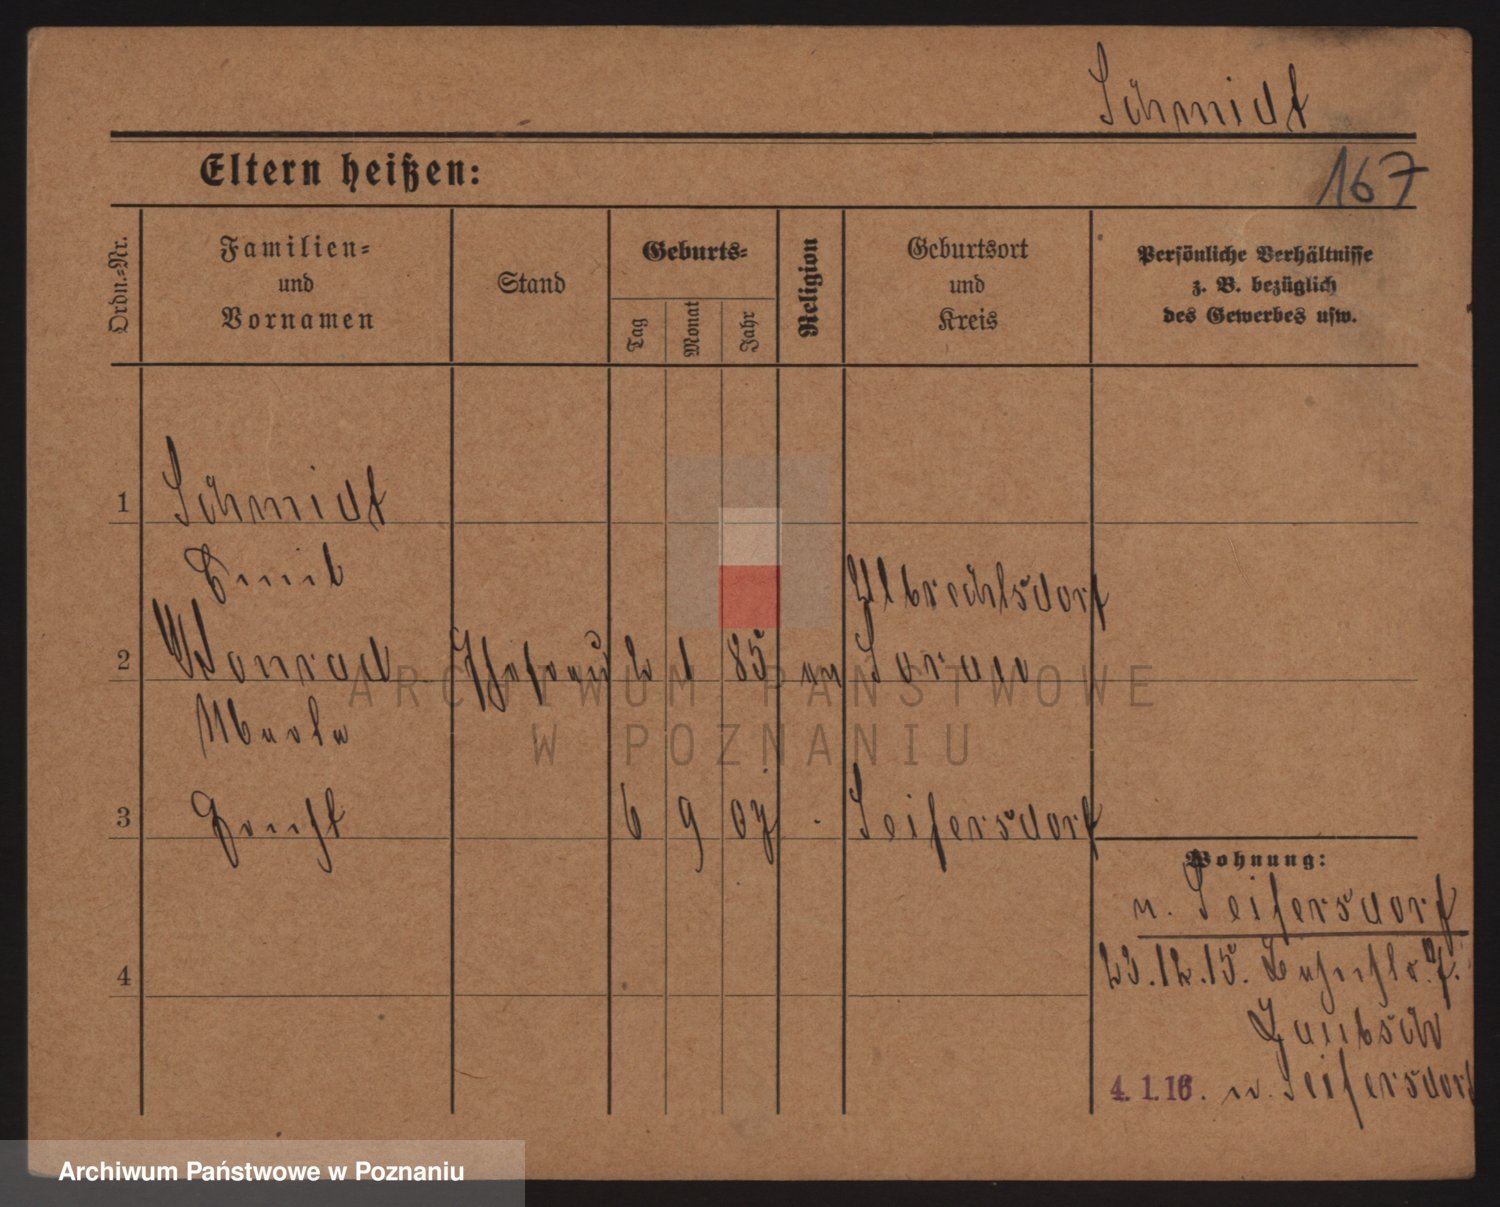 Schmidt
Eltern heißen:
167
Ordn.=Nr.
Familien=
und
Vornamen
Stand
Geburts=
Tag
Monat
Jahr
Religion
Geburtsort
und
Kreis
Persönliche Verhältnisse
z. B. bezüglich
des Gewerbes usw.
1 Schmidt
Emil
Albrechtsdorf
2 Konrad Ehefrau 2 1 85 Sorau
3 6 9 07 Seifersdorf
Wohnung:
n. Seifersdorf
23.12.15. 7.
4
4.1.16. n. Seifersdorf
ARCHIWUM PAŃSTWOWE
W POZNANIU
Archiwum Państwowe w Poznaniu